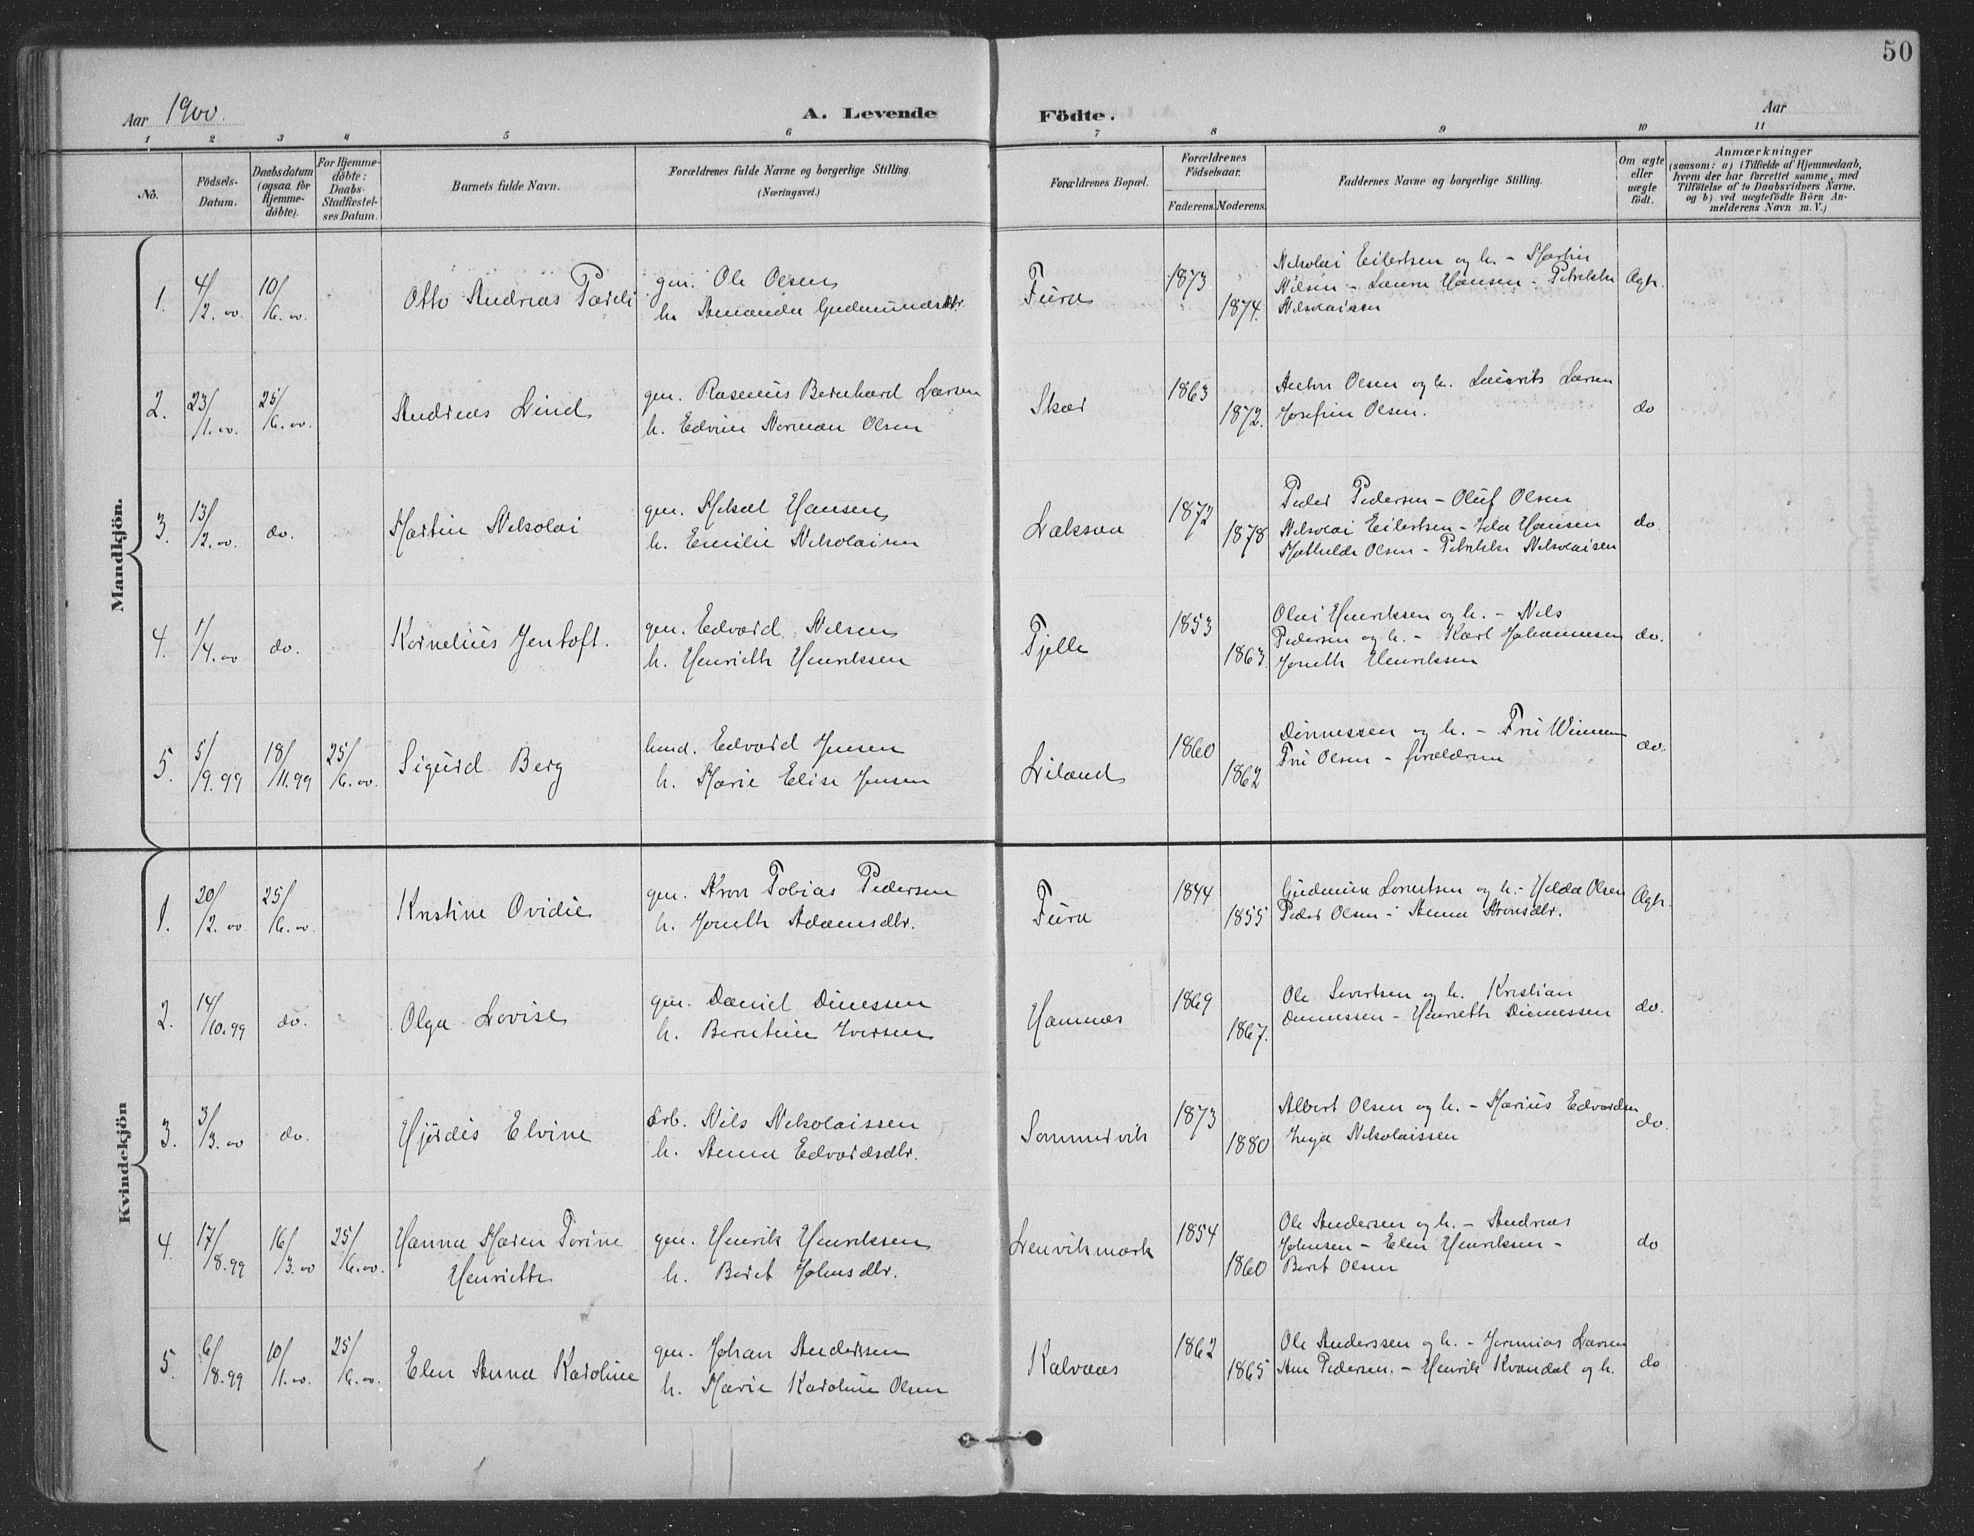 50
Aar 1900.
A. Levende Födte.
Aar
1 2 3 4 5 6 7 8 9 10 11
No.
Födsels-Datum.
Daabsdatum (ogsaa för Hjemmedöbte).
For Hjemmedöbte: Daabs-Stadfæstelses Datum.
Barnets fulde Navn.
Forældrenes fulde Navne og borgerlige Stilling.
(Næringsvei.)
Forældrenes Bopæl.
Forældrenes Födselsaar.
Faderens. Moderens.
Faddernes Navne og borgerlige Stilling.
Om ægte eller uægte födt.
Anmærkninger
(saasom: a) i Tilfælde af Hjemmedaab,
hvem der har forrettet samme, med
Tilföielse af to Daabsvidners Navne.
og b) ved uægtefödte Börn An-
melderens Navn m. V.)
Mandkjön.
1. 4/2.00. 10/6.00. Otto Andreas Pareli gm. Ole Olsen
h. Amanda Gudmundsdtr. Fura 1873 1874. Nikolai Eilertsen og h. - Martin
Nilsen - Laura Hansen - Petrikke
Nikolaisen Ægte.
2. 23/1.00. 25/6.00. Andreas Lind gm. Rasmus Bernhard Larsen
h. Edvin Norman Olsen Skar 1863 1872. Anton Olsen og h. Laurits Larsen
Josefine Olsen. do
3. 13/2.00. do. Martin Nikolai gm. Mikal Hansen
h. Emilie Nikolaisen Laksaa 1872 1878 Peder Pedersen - Oluf Olsen
Nikolai Eilertsen - Ida Hansen
Mathilde Olsen - Petrikke Nikolaisen do.
4. 1/4.00 do. Kornelius Jentoft. gm. Edvard Nilsen
h. Henriette Henriksen Fjelle 1853 1863. Olai Henriksen og h. - Nils
Pedersen og h. - Karl Johannesen
Jonette Henriksen do.
5. 5/9.99 18/11.99 25/6.00. Sigurd Berg hand. Edvard Jensen
h. Marie Elise Jensen Liland 1860 1862 Dinnessen og h. - Fru
Fru Olsen - forældrene do.
Kvindekjön
1. 20/2.00 25/6.00. Kristine Ovidie gm. Aron Tobias Pedersen
h. Jonette Adamsdtr. Fura 1844 1855 og h. - Hilda Olsen
Peder Olsen - Anna Aronsdtr. Ægte.
2. 14/10.99 do. Olga Lovise gm. Daniel Dinessen
h. Berntine Iversen Hamnes 1869 1867. Ole Sivertsen og h. Kristian
Dinnessen - Henriette Dinnessen do.
3. 3/3.00 do. Hjørdis Elvine arb. Nils Nikolaissen
h. Anna Edvardsdtr. Sommervik 1873 1880 Albert Olsen og h. - Marius Edvardsen
Inga Nikolaissen do.
4. 17/8.99 16/3.00 25/6.00. Hanna Maren Torine
Henriette gm. Henrik Henriksen
h. Beret Johnsdtr. Lenvikmark 1854 1860 Ole Andersen og h. - Andreas
Johnsen - Elen Henriksen -
Beret Olsen do
5. 6/8.99 10/1.00. 25/6.00. Elen Anna Karoline gm. Johan Anderssen
h. Marie Karoline Olsen Kalvaas 1862 1865 Ole Anderssen og h. - Jeremias Larsen
Ane Pedersen. - Henrik Kvandal og h. do